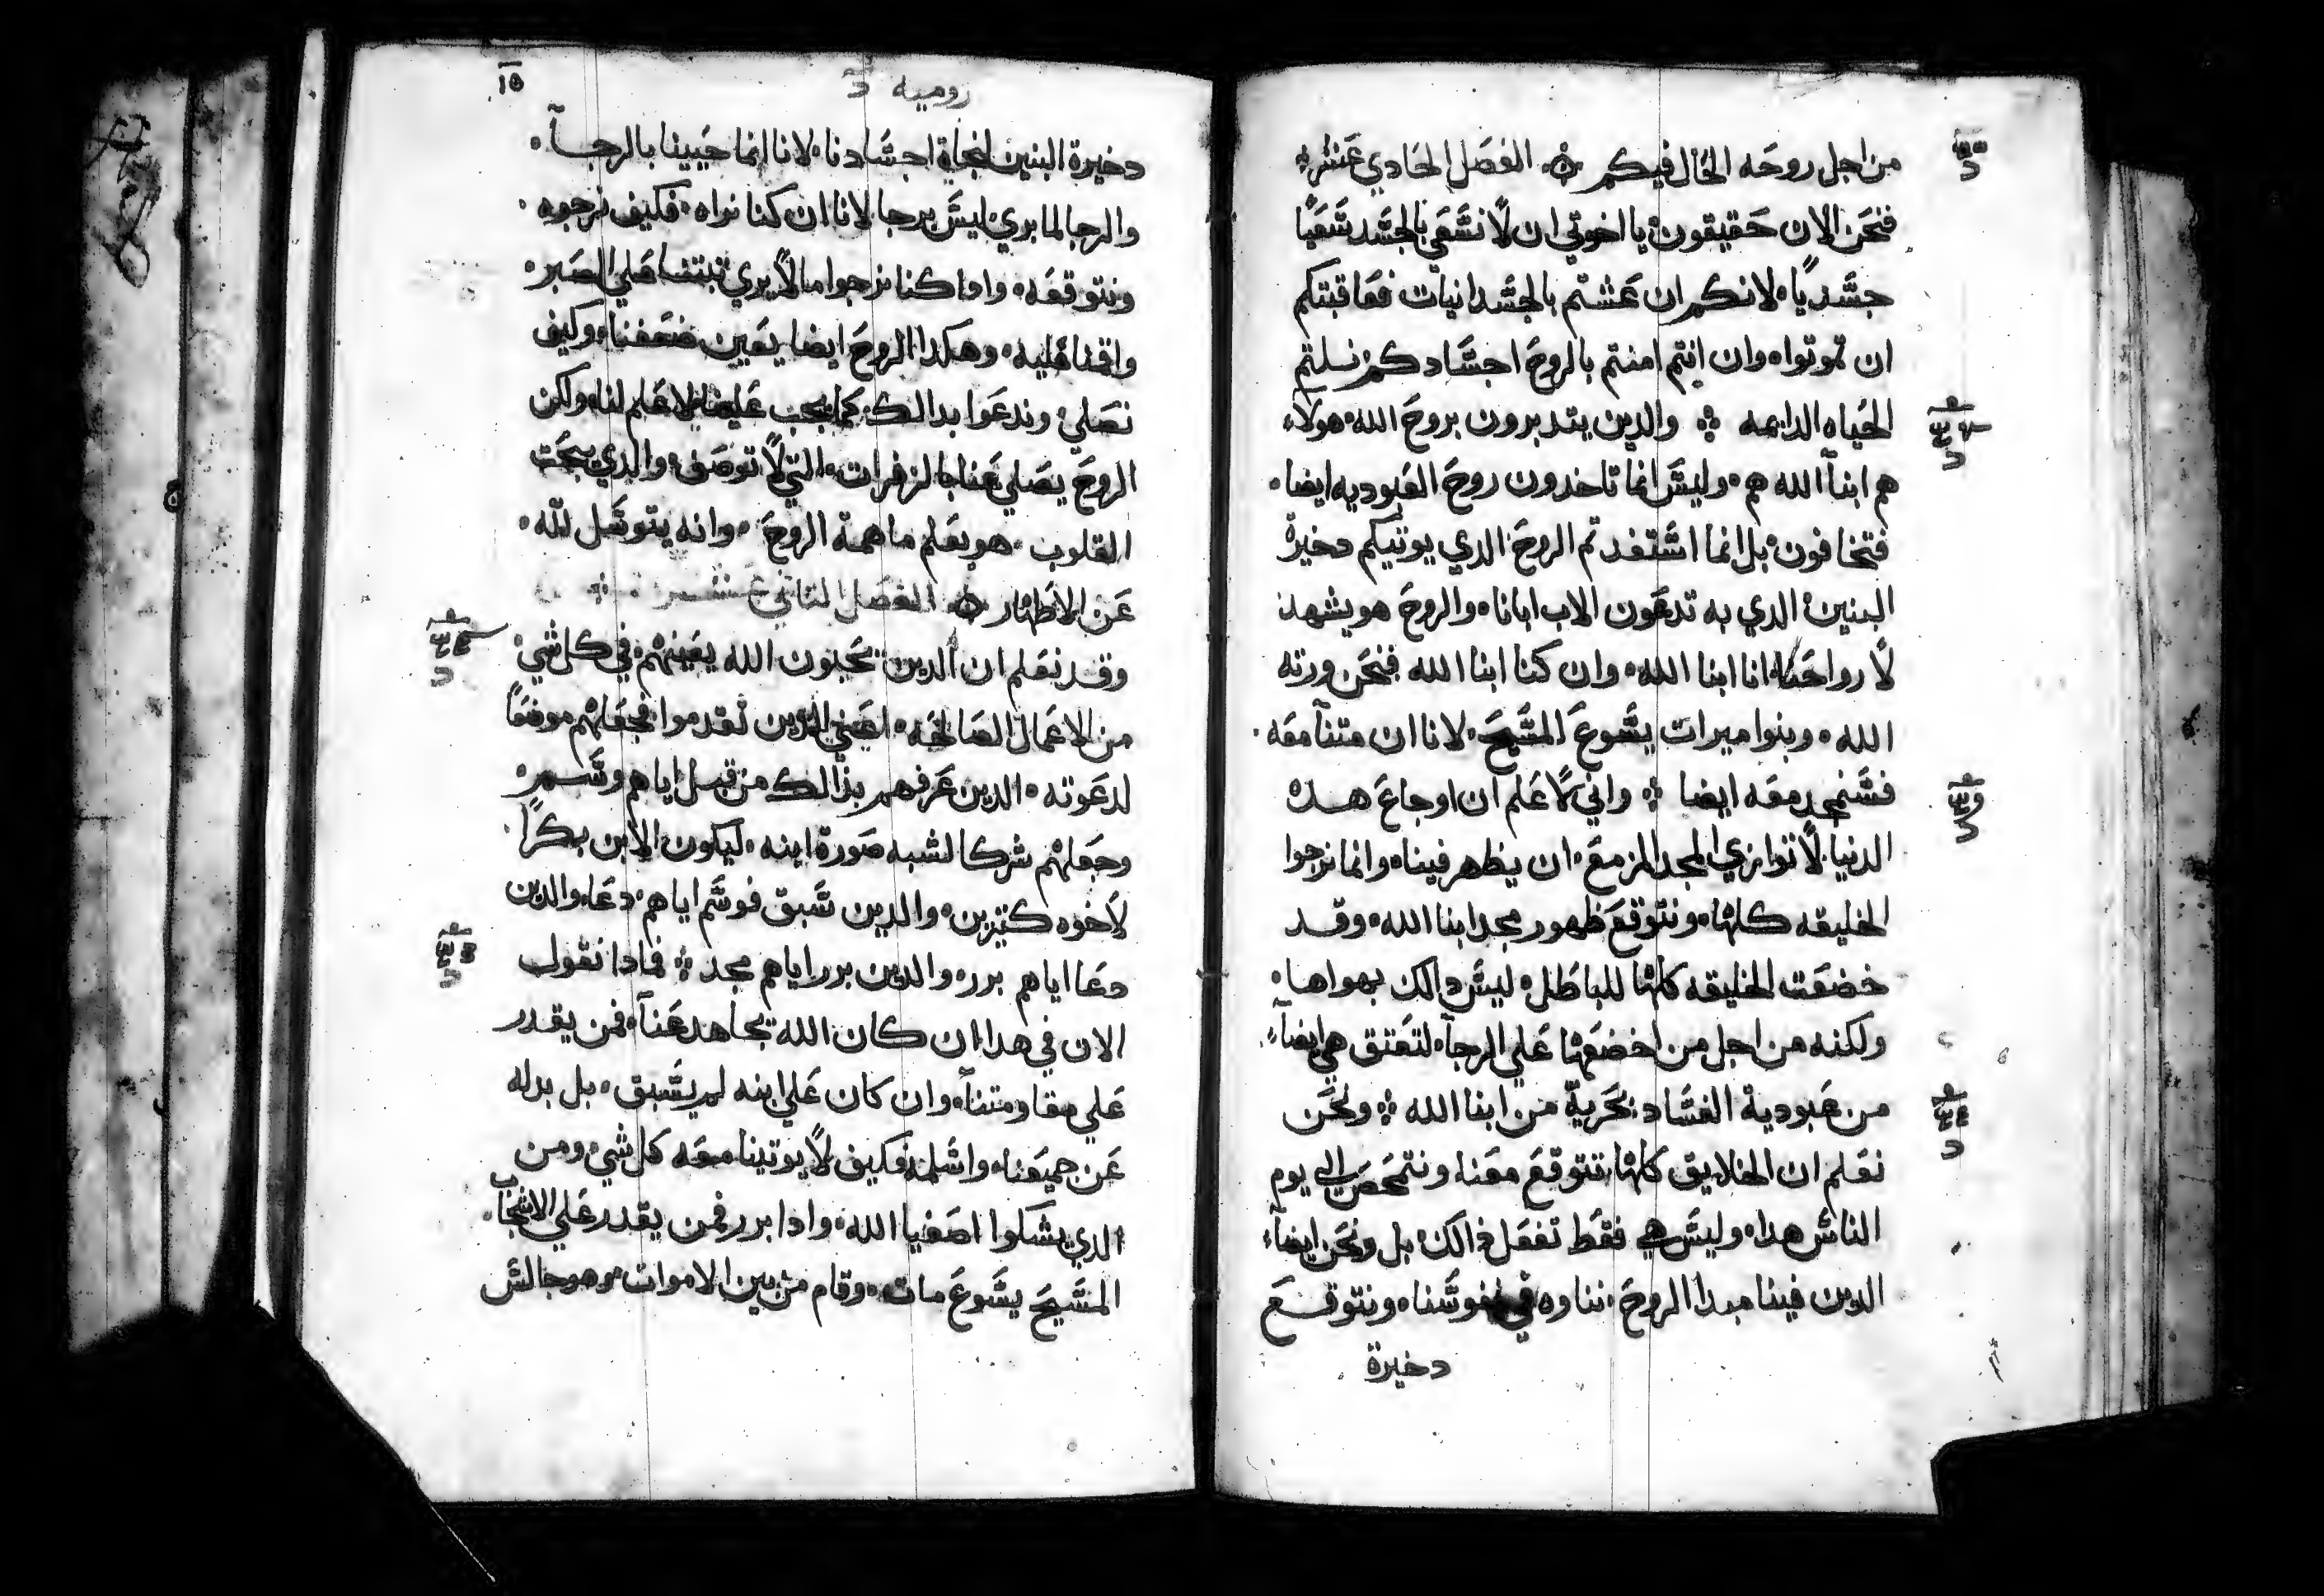 من اجل روحه الحال فيكم ۞ الفصل الحادي عشر
فنحن الان حقيقون يا اخوتي ان لا نسعي بالجسد سعيًا
جسديًا لانكم ان عشتم بالجسدانيات فعاقبتكم
ان تموتوا وان انتم امتم بالروح اجسادكم نلتم
الحياه الدايمه والدين يتدبرون بروح الله هولاء
هم ابنآ الله هم وليس انما تاخدون روح العبوديه ايضا
فتخافون بل انما استفدتم الروح الدي يوتيكم دخيرة
البنين الدي به تدعون الاب ابانا والروح هو يشهد
لارواحنا انا ابنا الله وان كنا ابنا الله فنحن ورته
الله وبنوا ميرات يسوع المسيح لانا ان متنآ معه
فسنمجد معه ايضا واني لاعلم ان اوجاع هده
الدنيا لا توازي المجد المزمع ان يظهر فينا وانما نرجوا
الخليقه كلها ونتوقع ظهور مجد ابنا الله وقد
خضعت الخليقه كلها للباطل ليس دالك بهواها
ولكنه من اجل من اخضعها علي الرجآ لتعتق هي ايضآ
من عبودية الفساد بحرية من ابنا الله ونحن
نعلم ان الخلايق كلها تتوقع معنا ونتمخص الي يوم
الناس هدا وليس هي فقط تفعل دالك بل ونحن ايضآ
الدين فينا مبدا الروح نناوه في نفوسنا ونتوقع
دخيرة
روميه
١٥
دخيرة البنين لنجاة اجسادنا لانا انما حيينا بالرجآ
والرجا لما يري ليس برجا لانا ان كنا نراه فكيف نرجوه
ونتوقعه وادا كنا نرجوا ما لا يري تبتنا علي الصبر
واقمنا عليه وهكدا الروح ايضا يعين ضعفنا وكيف
نصلي وندعوا بدالك كما يجب علينا لا علم لنا ولكن
الروح يصلي عنا بالزفرات التي لا توصف والدي يبحت
القلوب هو يعلم ما همة الروح وانه يتوسل لله
عن الاطهار ۞ الفصل التاني عشر
وقد نعلم ان الدين يحبون الله يعينهم في كل شي
من الاعمال الصالحه اعني الدين تقدموا فجعلهم موضعًا
لدعوته الدين عرفهم بدالك من قبل اياهم وسمهم
وجعلهم شركا لشبه صورة ابنه ليكون الابن بكرًا
لاخوه كتيرين والدين سبق فوسم اياهم دعا والدين
دعا اياهم برر والدين برر اياهم مجد فمادا نقول
الان في هدا ان كان الله يجاهد عنآ فمن يقدر
علي مقاومتنآ وان كان علي ابنه لم يشبق بل بدله
عن جميعنا واسلمه فكيف لا يوتينا معه كل شي ومن
الدي يشكوا اصفيا الله وادا برر فمن يقدر علي الاشجاب
المسيح يسوع مات وقام من بين الاموات وهو جالس